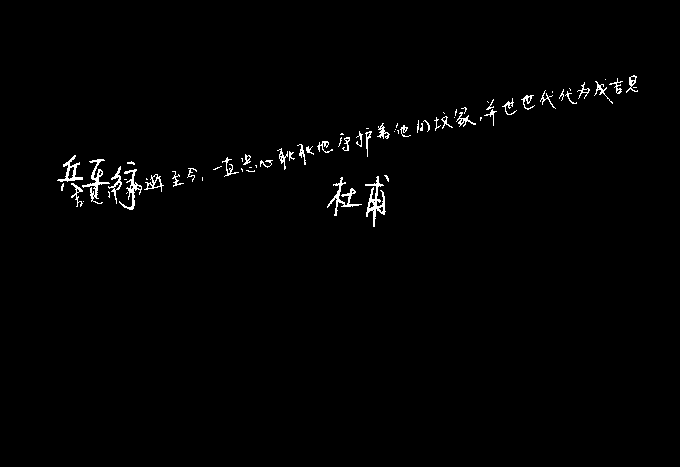 兵车行
吉思汗病逝至今,一直忠心耿耿地守护着他的坟冢,并世世代代为成吉思
杜甫